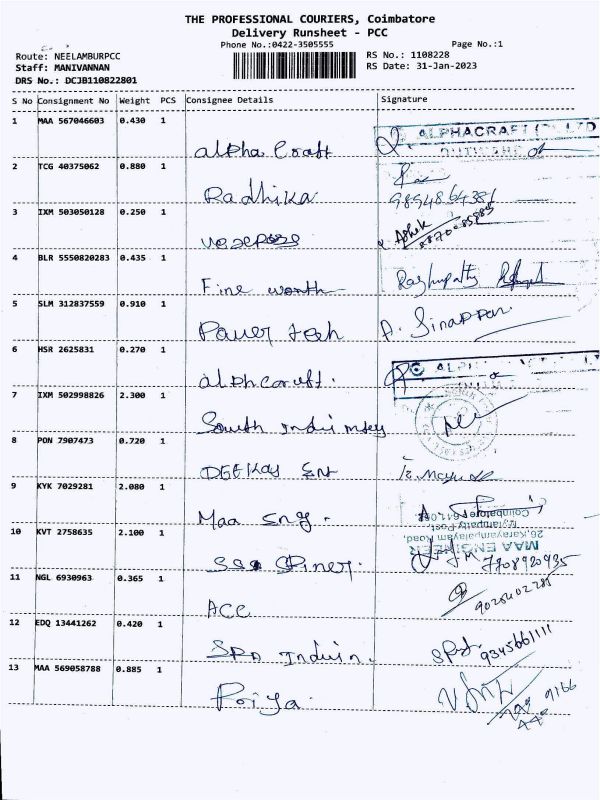 THE PROFESSIONAL COURIERS, Coimbatore
Delivery Runsheet - PCC
Phone No.:0422-3505555
Page No.:1
Route: NEELAMBURPCC
RS No.: 1108228
Staff: MANIVANNAN
RS Date: 31-Jan-2023
DRS No.: DCJB110822801
S No Consignment No Weight PCS Consignee Details Signature
1 MAA 567046603 0.430 1
ALPHACRAFT LTD
alpha Craft
2 TCG 40375062 0.880 1
Radhika 9894864381
3 IXM 503050128 0.250 1
Ashok
4 BLR 5550820283 0.435 1
Fine worth Raghupathy
5 SLM 312837559 0.910 1
Power tech A. Sinappan
6 HSR 2625831 0.270 1
alphcarft.
7 IXM 502998826 2.300 1
South India
8 PON 7907473 0.720 1
DEEKAY Ent
9 KYK 7029281 2.080 1
Maa Eng.
10 KVT 2758635 2.100 1
MAA ENGINEER
26,Karayampalayam Road,
Mylampatty Post
Coimbatore-641 062
7708920935
11 NGL 6930963 0.365 1
ACC
12 EDQ 13441262 0.420 1
9345661111
13 MAA 569058788 0.885 1
Priya